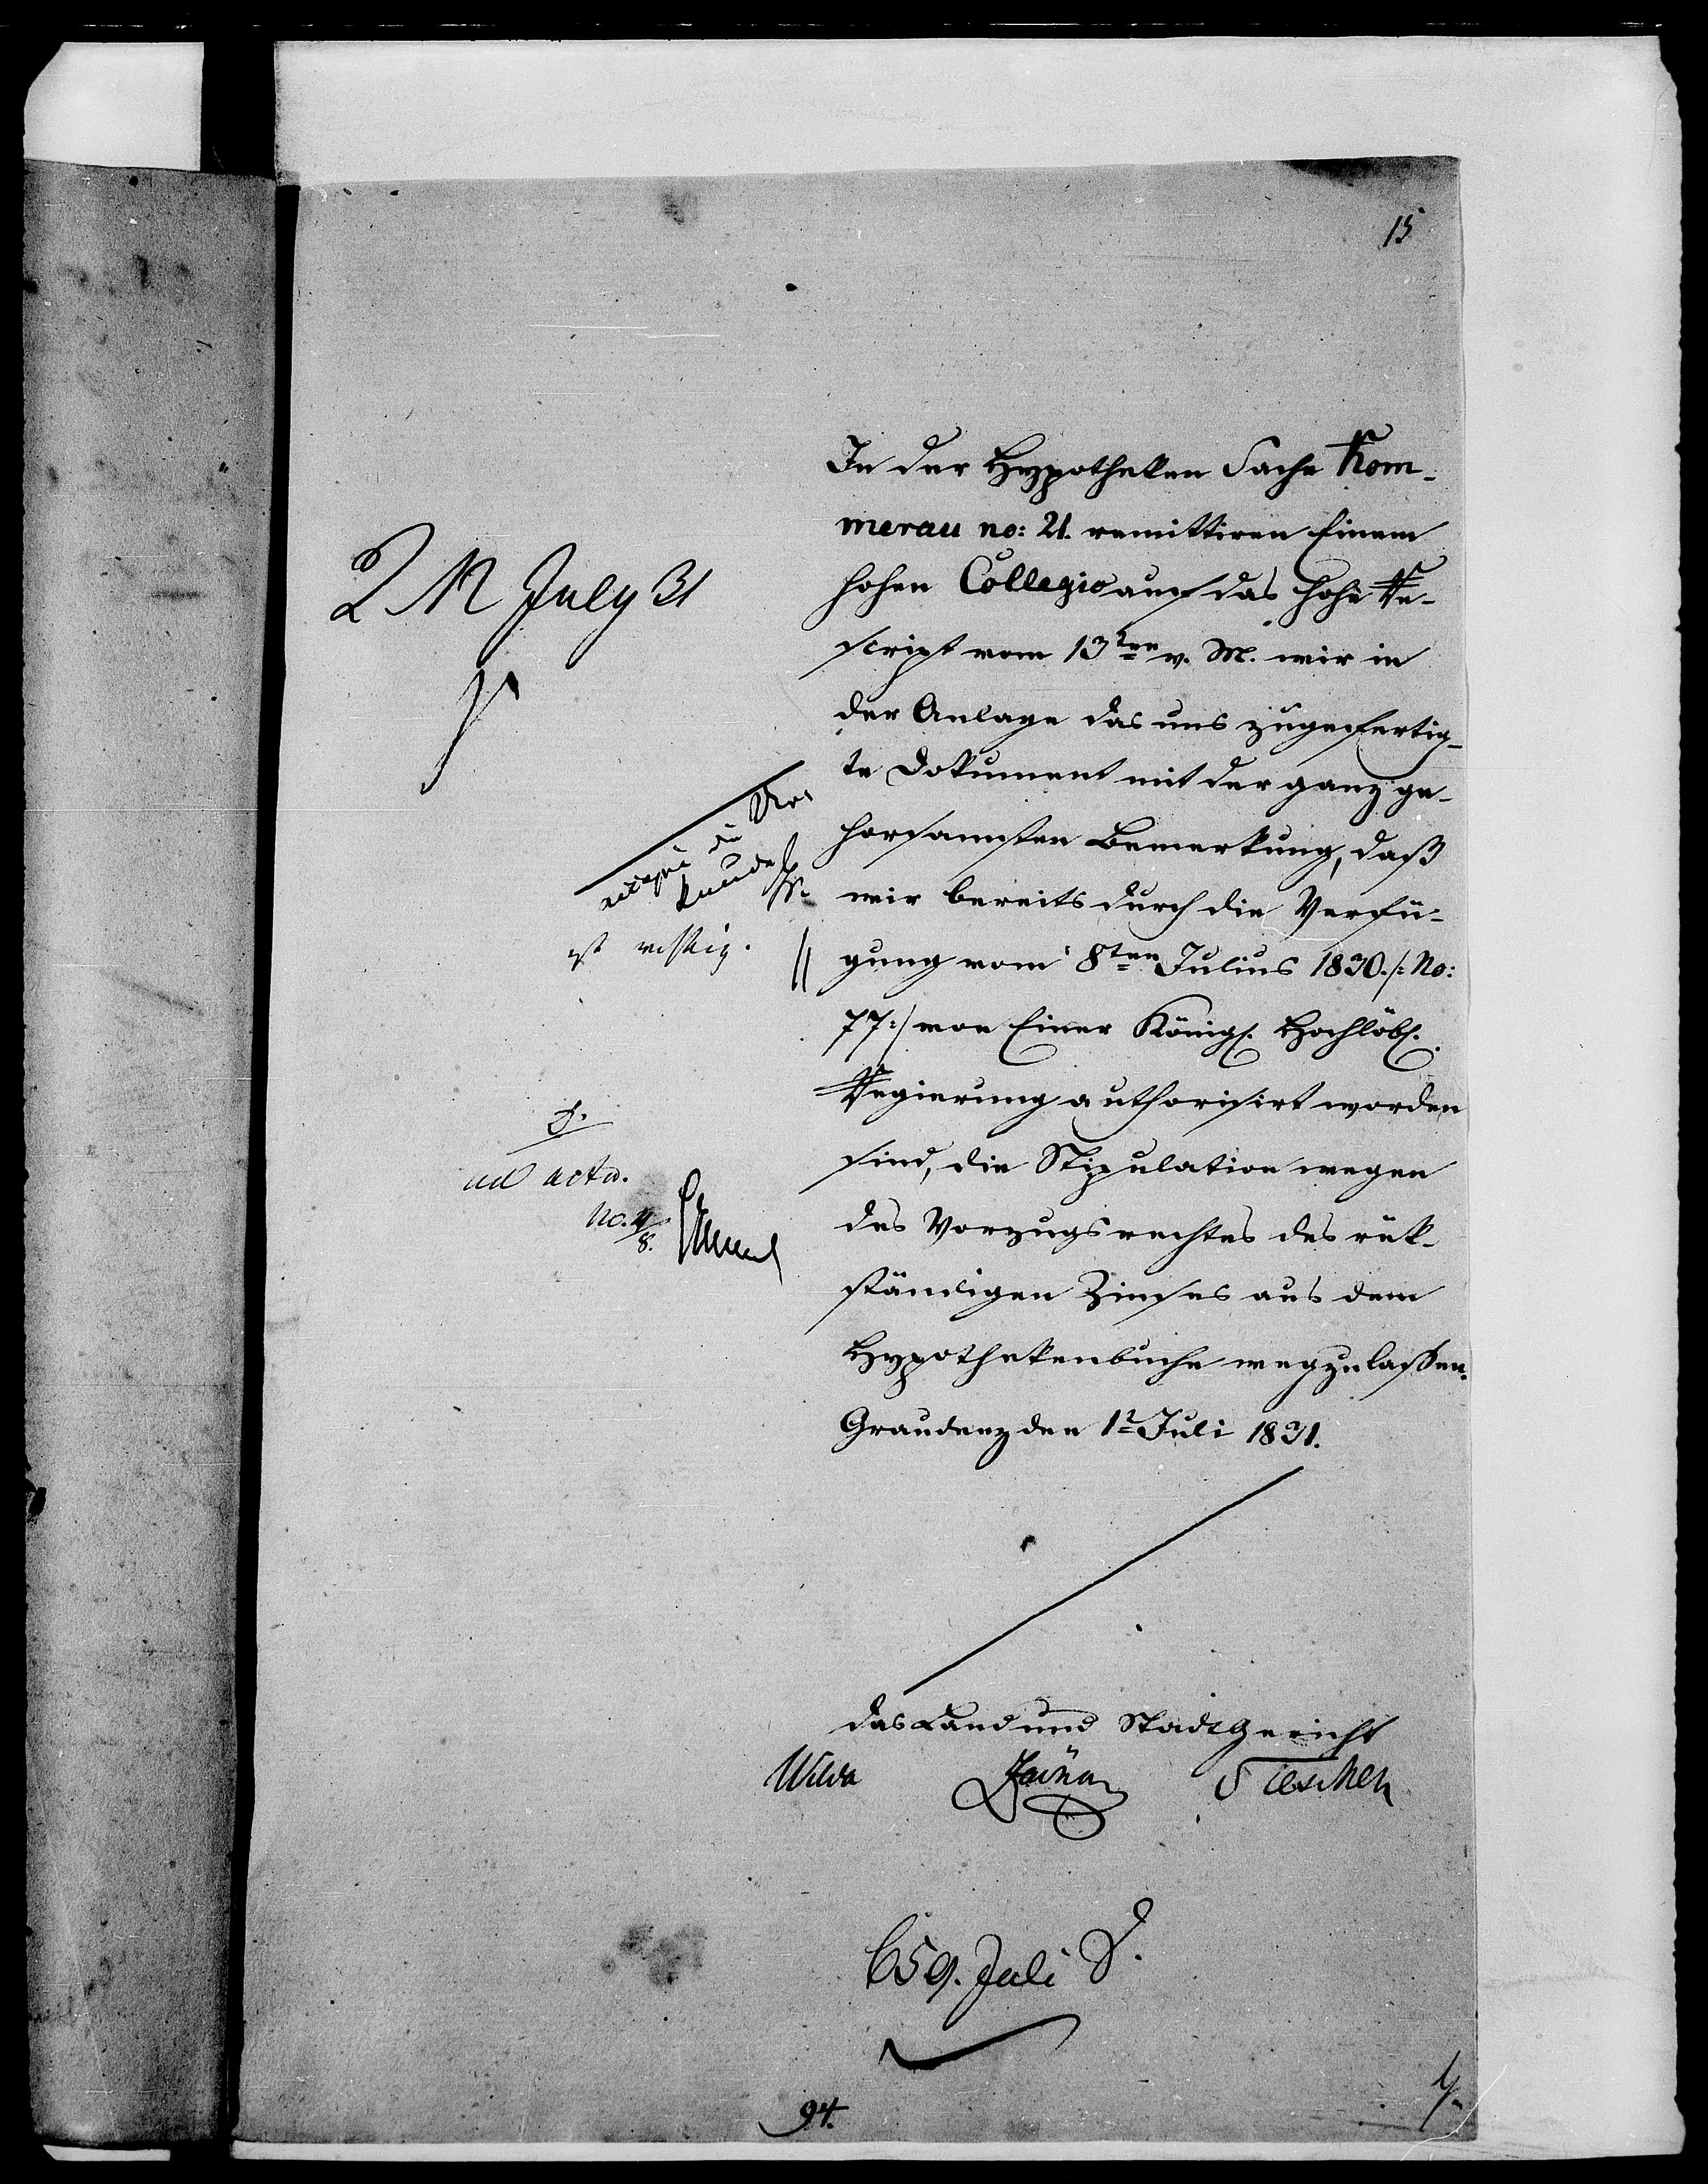 15
In der Hypotheken Sache Kom-
merau no: 21. remittiren Einem
hohen Collegio auf das hohe Re-
script vom 13ten v. M. wir in
der Anlage das uns zugefertig-
te Dokument mit der ganz ge-
horsamsten Bemerkung, daß
wir bereits durch die Verfü-
gung vom 8ten Julius 1830. /: No:
77 :/ von Einer Königl. Hochlöbl.
Regierung authorisirt worden
sind, die Stipulation wegen
des Vorzugsrechtes des rük-
ständigen Zinses aus dem
Hypothekenbuche wegzulassen.
Graudenz den 1t Juli 1831.
das Land und Stadtgericht
Wilda
July 31
ist richtig.
ad acta.
659. Juli
94.